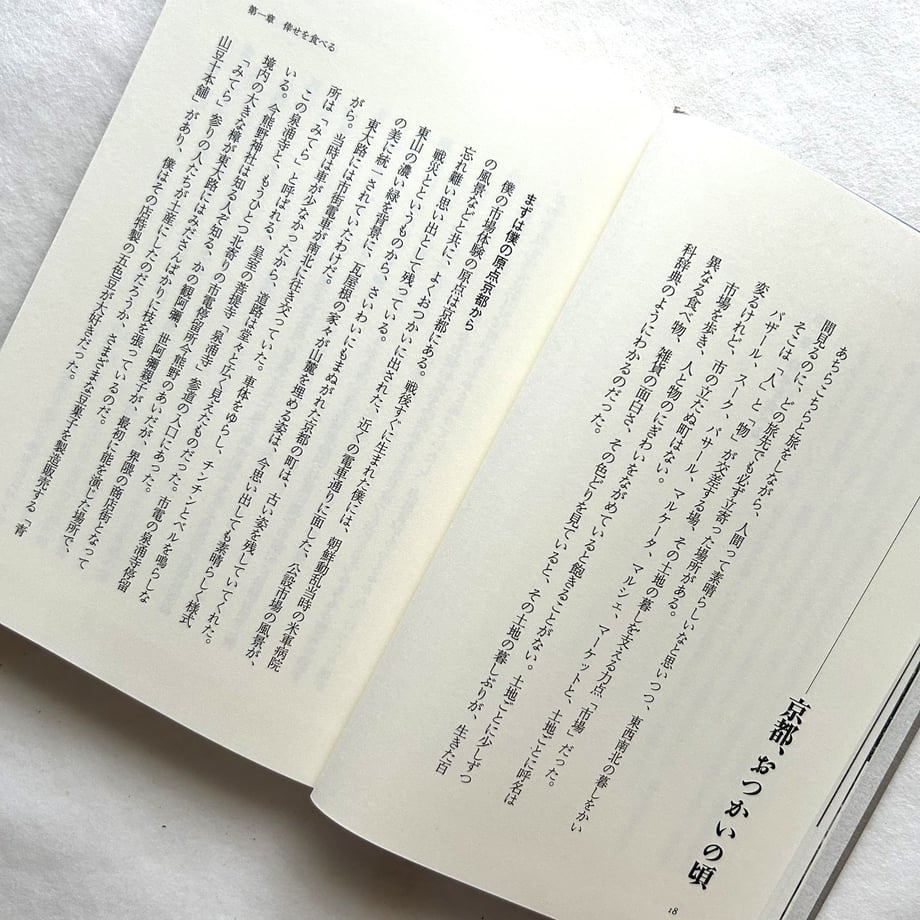 京都、おつかいの頃
あちらこちらと旅をしながら、人間って素晴らしいなと思いつつ、東西南北の暮しをかい
間見るのに、どの旅先でも必ず立寄った場所がある。
そこは「人」と「物」が交差する場、その土地の暮しを支える力点「市場」だった。
バザール、スーク、パサール、マルケータ、マルシェ、マーケットと、土地ごとに呼名は
変るけれど、市の立たぬ町はない。
市場を歩き、人と物のにぎわいをながめていると飽きることがない。土地ごとに少しずつ
異なる食べ物、雑貨の面白さ、その色どりを見ていると、その土地の暮しぶりが、生きた百
科辞典のようにわかるのだった。
18
第一章 倖せを食べる
まずは僕の原点京都から
僕の市場体験の原点は京都にある。戦後すぐに生まれた僕には、朝鮮動乱当時の米軍病院
の風景などと共に、よくおつかいに出された、近くの電車通りに面した、公設市場の風景が、
忘れ難い思い出として残っている。
戦災とというものから、さいわいにもまぬがれた京都の町は、古い姿を残していてくれた。
東山の濃い緑を背景に、瓦屋根の家々が山麓を埋める姿は、今思い出しても素晴らしく様式
の美に統一されていたわけだ。
東大路には市街電車が南北に往き交っていた。車体をゆらし、チンチンとベルを鳴らしな
がら。当時は車が少なかったから、道路は堂々と広く見えたものだった。市電の泉涌寺停留
所は「みてら」と呼ばれる、皇室の菩提寺「泉涌寺」参道の入口にあった。
この泉涌寺と、もうひとつ北寄りの市電停留所今熊野のあいだが、界隈の商店街となって
いる。今熊野神社は知る人ぞ知る、かの観阿彌、世阿彌親子が、最初に能を演じた場所で、
境内の大きな樟が東大路にはみださんばかりに枝を張っているのだ。
「みてら」参りの人たちが土産にしたのだろうか、さまざまな豆菓子を製造販売する「青
山豆十本舗」があり、僕はその店特製の五色豆が大好きだった。